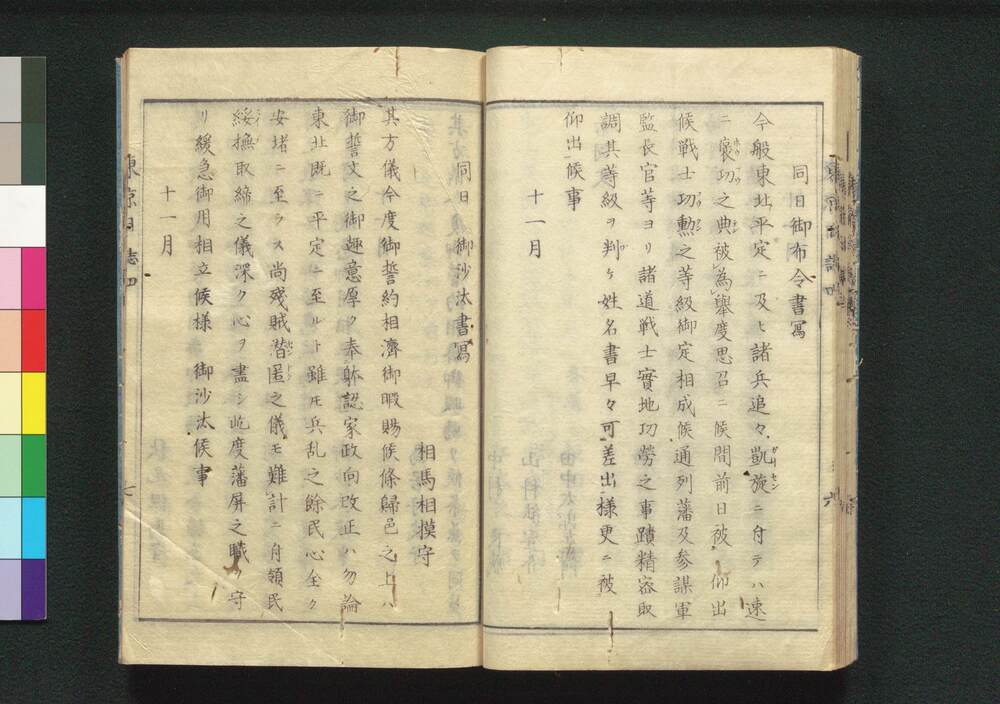 同日御布令書寫
今般東北平定ニ及ヒ諸兵追々凱旋ニ付テハ速
ニ褒功之典被為舉度思召ニ候間前日被 仰出
候戦士功勲之等級御定相成候通列藩及参謀軍
監長官等ヨリ諸道戦士實地功勞之事蹟精密取
調其等級ヲ判ケ姓名書早々可差出様更ニ被
仰出候事
十一月
同日 御沙汰書寫
相馬相摸守
其方儀今度御誓約相濟御暇賜候條歸邑之上ハ
御誓文之御趣意厚ク奉躰認家政向改正ハ勿論
東北既ニ平定ニ至ルト雖𪜈兵乱之餘民心全ク
安堵ニ至ラス尚殘賊潜匿之儀モ難計ニ付領民
綏撫取締之儀深ク心ヲ盡シ屹度藩屏之職ヲ守
リ緩急御用相立候様 御沙汰候事
十一月
東京日誌四